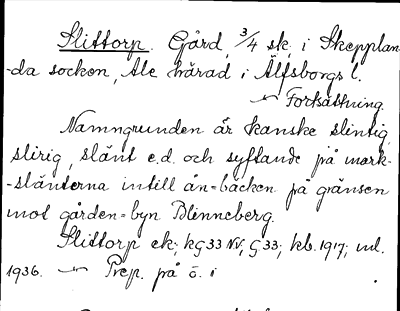 Slittorp. Gård, 3/4 sk, i Skepplan-
-da socken, Ale härad i Älfsborgs l.
Fortsättning.
Namngrunden är kanske slintig,
slirig, slänt e.d. och syftande på mark-
-slänterna intill ån=bäcken på gränsen
mot gården=byn Blinneberg.
Slittorp ek; kG33 NV, G 33; kb. 1917; ml.
1936. Prep. på ö. i